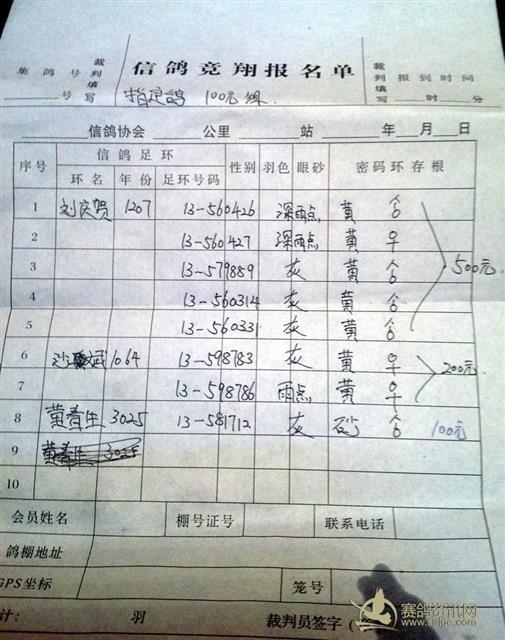 信鸽竞翔报名单
集鸽号 裁判填写 ____号
裁判填写 报到时间 ____时____分
指定鸽 100元组
____信鸽协会____公里____站____年__月__日
序号 信鸽足环 性别 羽色 眼砂 密码环存根
环名 年份 足环号码
1 刘庆贺 1207 13-560426 深雨点 黄 ♂
2 13-560427 深雨点 黄 ♀
3 13-579889 灰 黄 ♂ 500元
4 13-560314 灰 黄 ♂
5 13-560331 灰 黄 ♂
6 1064 13-598783 灰 黄 ♀ 200元
7 13-598786 雨点 黄 ♀
8 黄春生 3025 13-581712 灰 砂 ♂ 100元
9 黄春生 3025
10
会员姓名 棚号证号 联系电话
鸽棚地址
GPS坐标 笼号
计: 羽 裁判员签字
赛鸽资讯网
www.saige.com